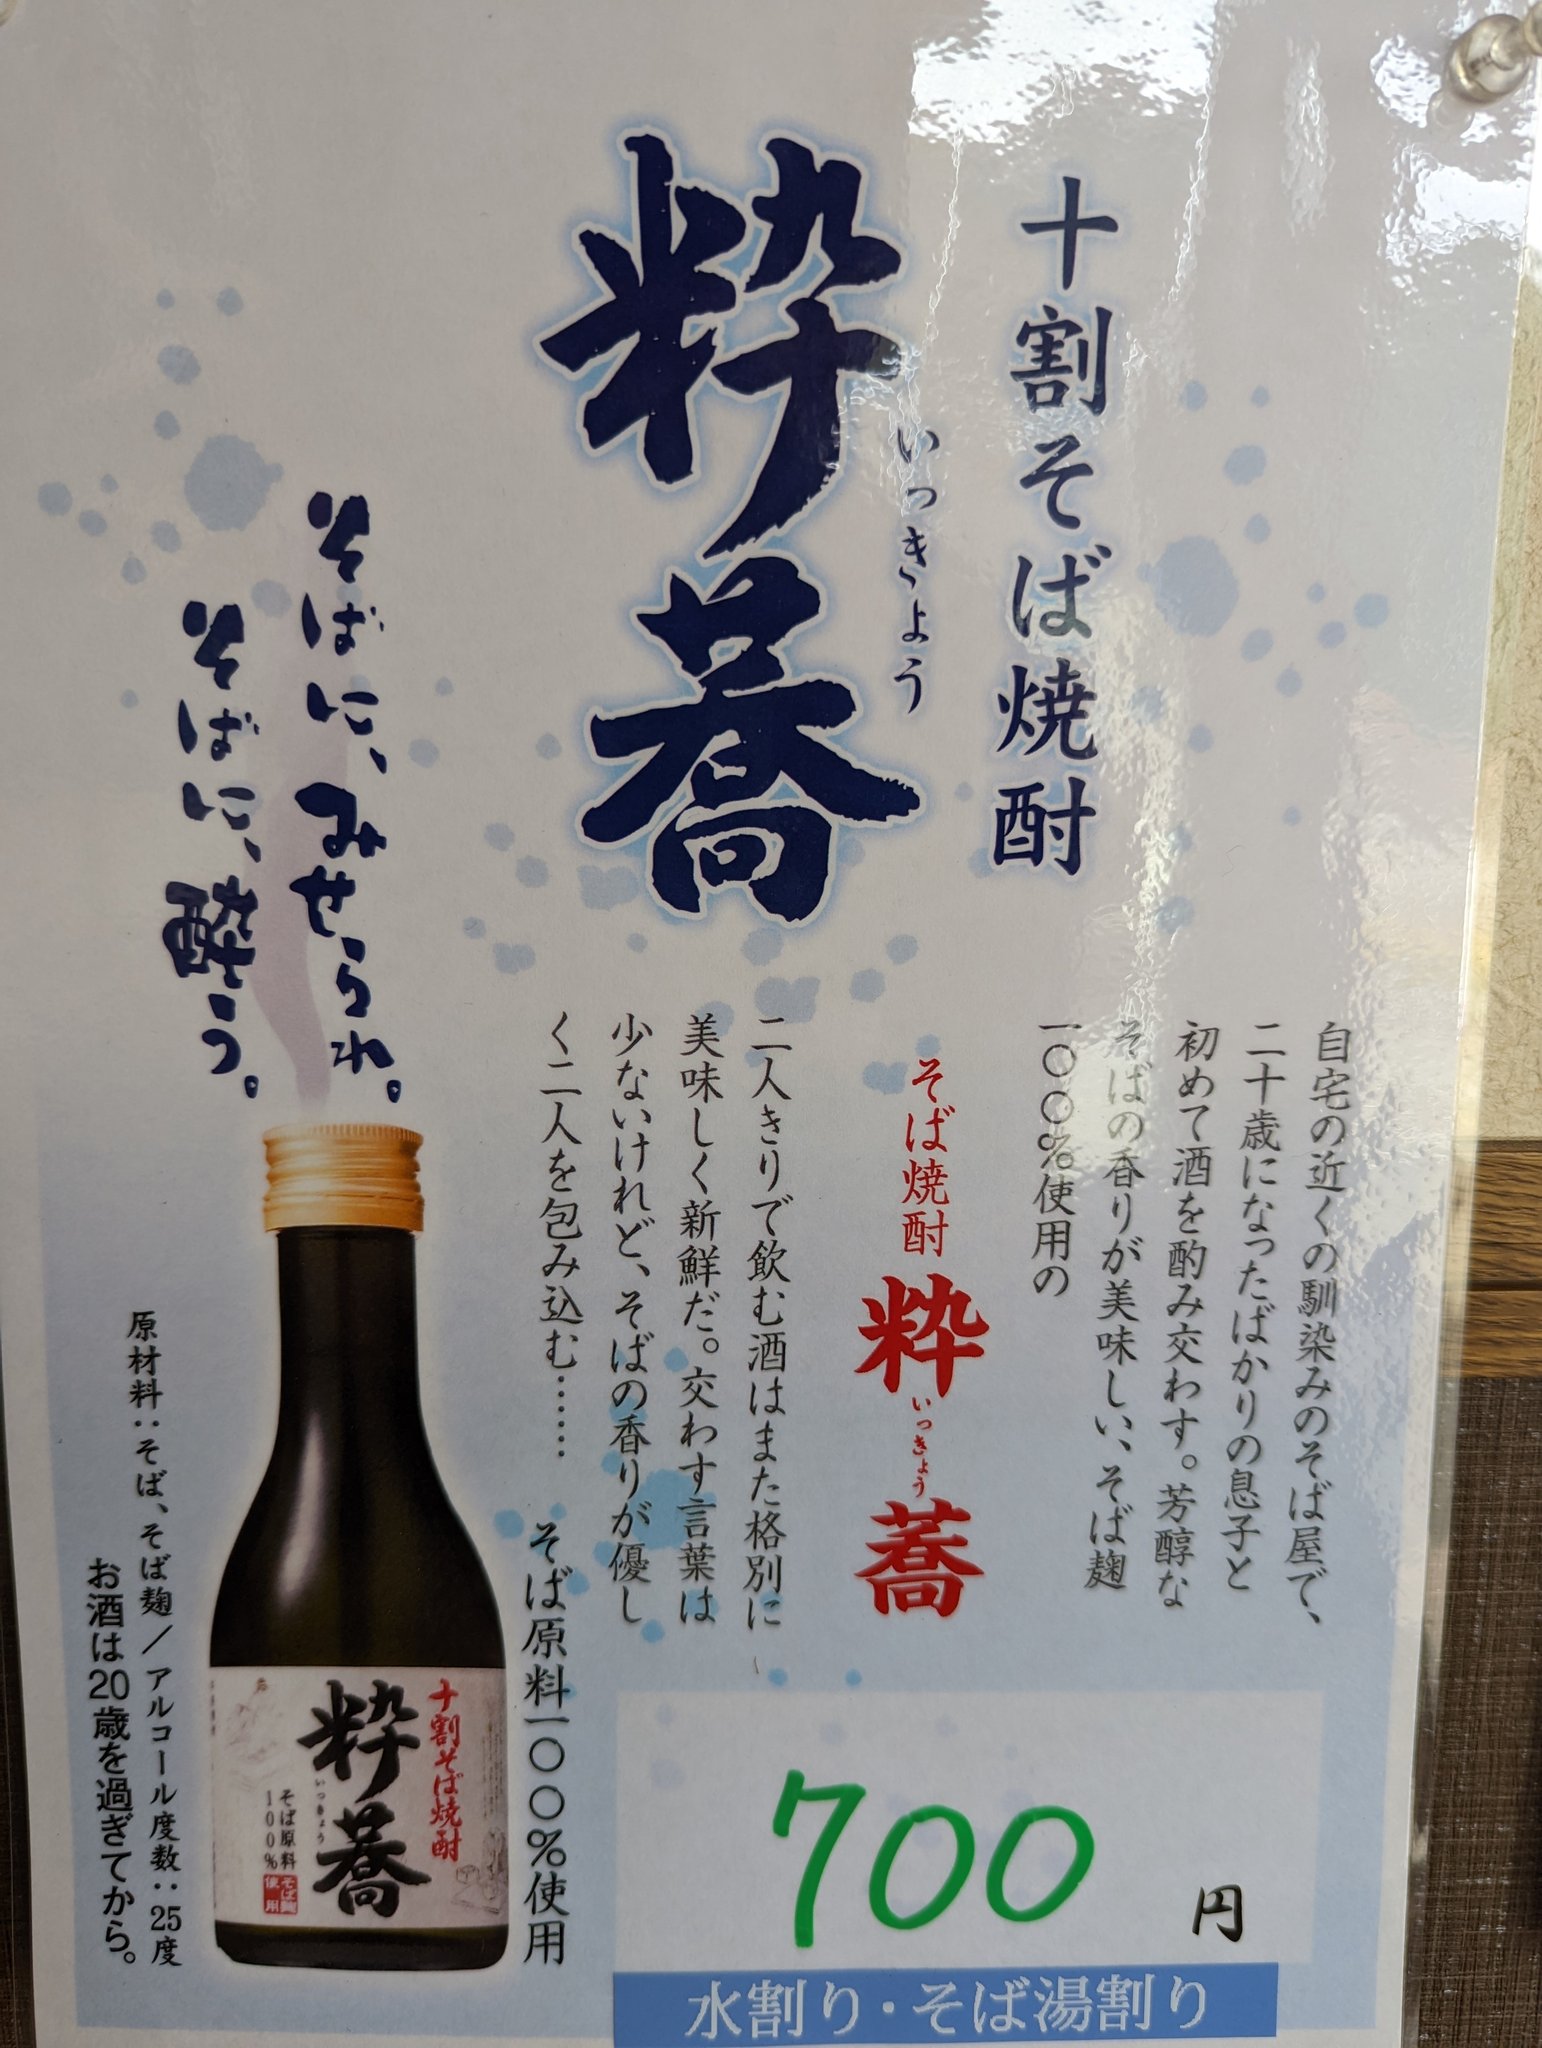 十割そば焼酎
粋蕎
いっきょう
そばに、みせられ。
そばに、酔う。
自宅の近くの馴染みのそば屋で、
二十歳になったばかりの息子と
初めて酒を酌み交わす。芳醇な
そばの香りが美味しい、そば麹
一〇〇％使用の
そば焼酎 粋蕎
いっきょう
二人きりで飲む酒はまた格別に
美味しく新鮮だ。交わす言葉は
少ないけれど、そばの香りが優し
く二人を包み込む……
そば原料一〇〇％使用
原材料：そば、そば麹／アルコール度数：25度
お酒は20歳を過ぎてから。
十割そば焼酎
粋蕎
いっきょう
そば原料
100%
そば麹
使用
700円
水割り・そば湯割り